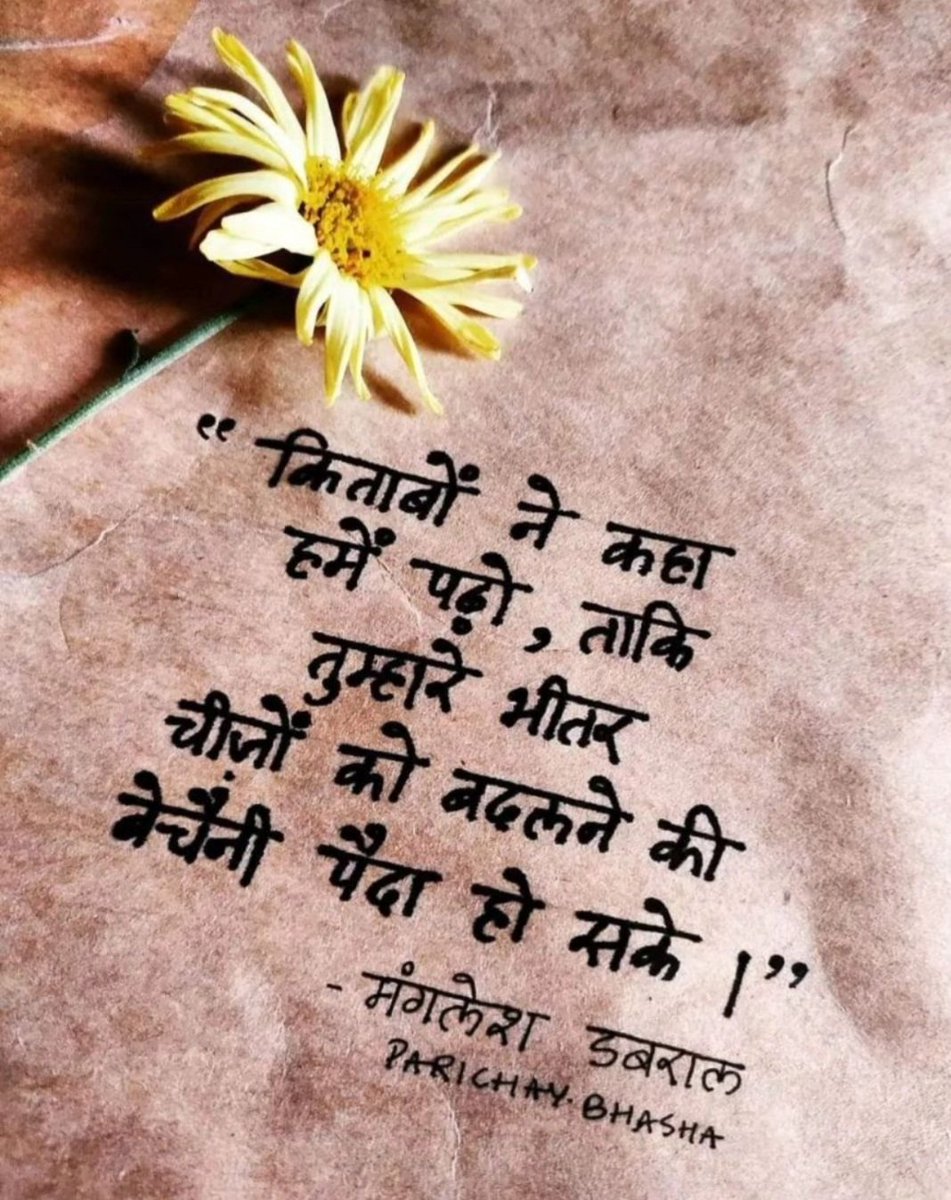 “किताबों ने कहा
हमें पढ़ो, ताकि
तुम्हारे भीतर
चीज़ों को बदलने की
बेचैनी पैदा हो सके।”
- मंगलेश डबराल
PARICHAY.BHASHA